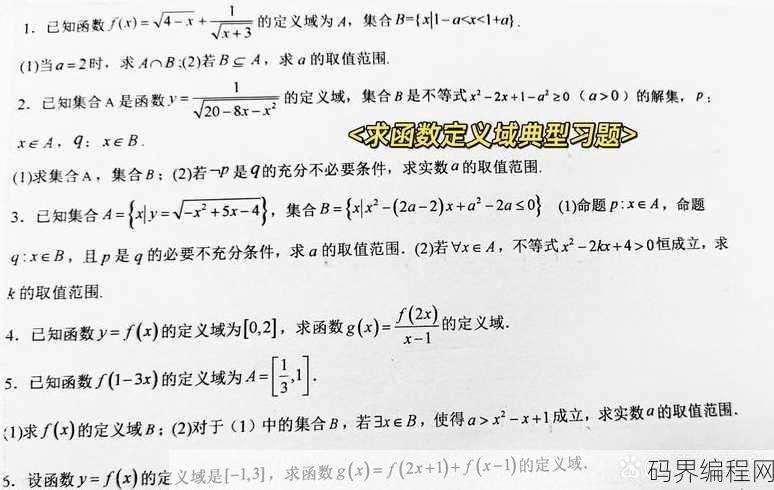 1. 已知函数 f(x)=√(4-x)+1/√(x+3) 的定义域为 A，集合 B={x|1-a<x<1+a}.
(1)当 a=2 时，求 A∩B;(2)若 B⊆A，求 a 的取值范围.
2. 已知集合 A 是函数 y=1/√(20-8x-x²) 的定义域，集合 B 是不等式 x²-2x+1-a²≥0（a>0）的解集，P：
x∈A，q：x∈B.
<求函数定义域典型习题>
(1)求集合 A，集合 B；(2)若¬P 是 q 的充分不必要条件，求实数 a 的取值范围.
3. 已知集合 A={x|y=√(-x²+5x-4)}，集合 B={x|x²-(2a-2)x+a²-2a≤0} (1)命题 p:x∈A，命题
q:x∈B，且 p 是 q 的必要不充分条件，求 a 的取值范围. (2)若∀x∈A，不等式 x²-2kx+4>0 恒成立，求
k 的取值范围.
4. 已知函数 y=f(x) 的定义域为[0,2]，求函数 g(x)=f(2x)/(x-1) 的定义域.
5. 已知函数 f(1-3x) 的定义域为 A=[1/3,1].
(1)求 f(x) 的定义域 B；(2)对于（1）中的集合 B，若∃x∈B，使得 a>x²-x+1 成立，求实数 a 的取值范围.
6. 设函数 y=f(x) 的定义域是[-1,3]，求函数 g(x)=f(2x+1)+f(x-1) 的定义域.
码界编程网